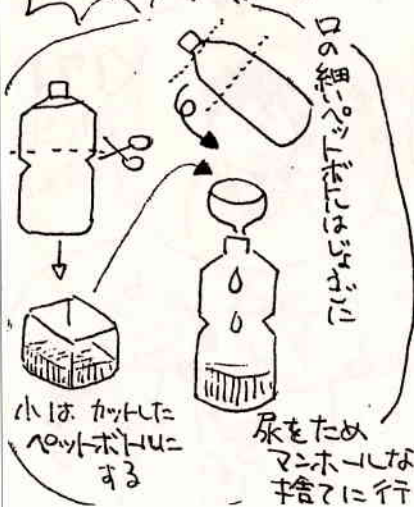 口の細いペットボトルはじょうごに
小は カットした
ペットボトルに
する
尿をため
マンホールな
捨てに行